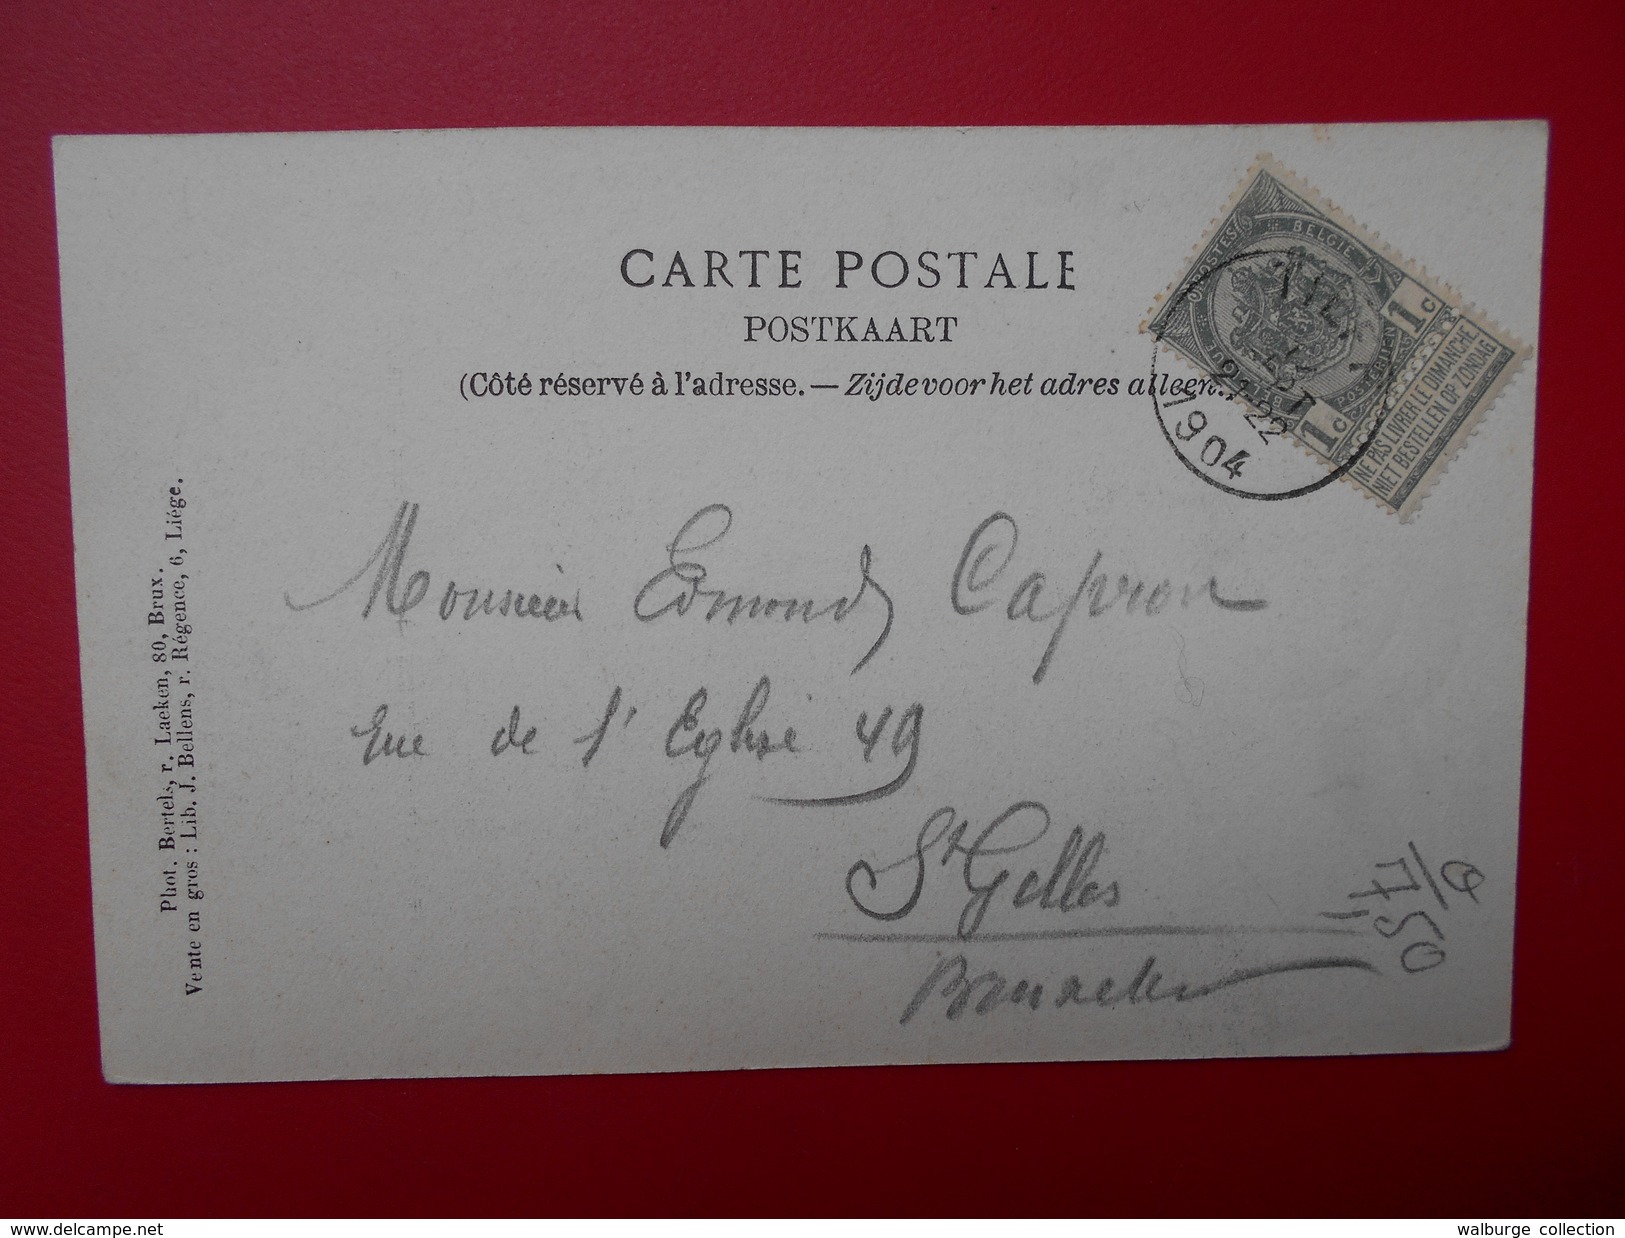 CARTE POSTALE
POSTKAART
(Côté réservé à l'adresse. — Zijde voor het adres alleen.)
POSTES BELGIE
1c
1c
NE PAS LIVRER LE DIMANCHE
NIET BESTELLEN OP ZONDAG
22
1904
Monsieur Edmond Capron
rue de l'Eglise 49
St Gilles
Bruxelles
7,50
Phot. Bertels, r. Laeken, 80, Brux.
Vente en gros : Lib. J. Bellens, r. Régence, 6, Liége.
www.delcampe.net
walburge collection